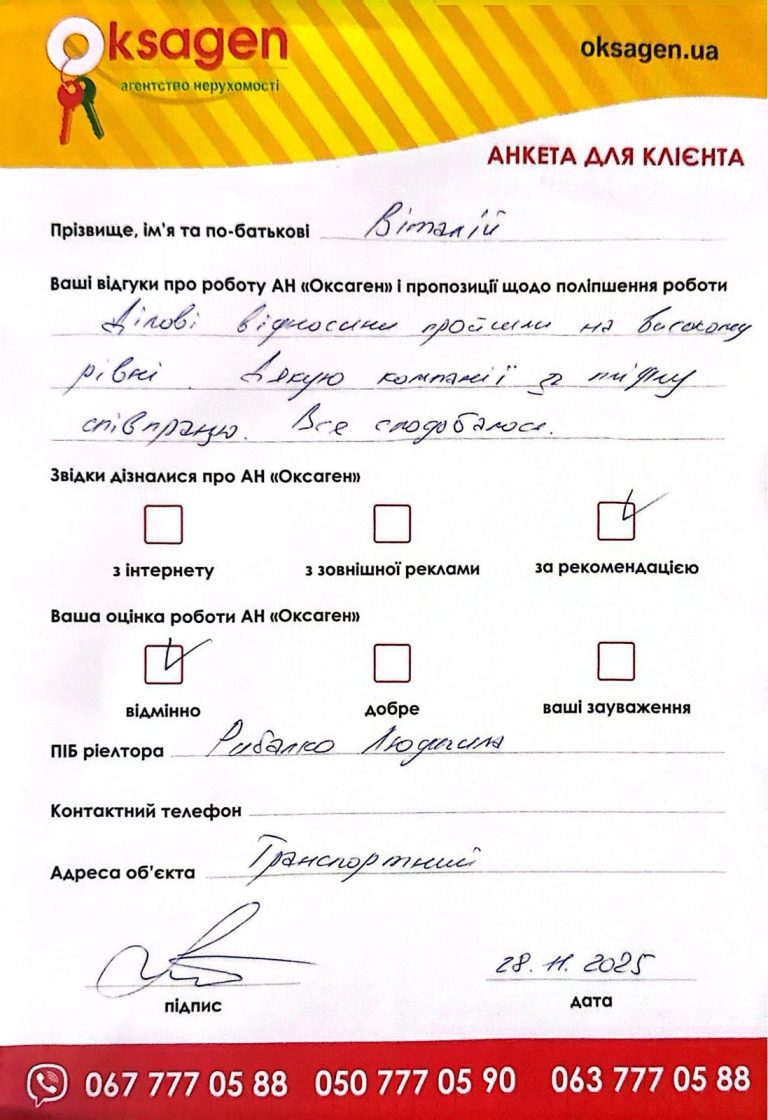 Oksagen
агентство нерухомості
oksagen.ua
АНКЕТА ДЛЯ КЛІЄНТА
Прізвище, ім'я та по-батькові Віталій
Ваші відгуки про роботу АН «Оксаген» і пропозиції щодо поліпшення роботи
Ділові відносини пройшли на високому
рівні. Дякую компанії за плідну
співпрацю. Все сподобалося.
Звідки дізналися про АН «Оксаген»
з інтернету з зовнішної реклами за рекомендацією
Ваша оцінка роботи АН «Оксаген»
відмінно добре ваші зауваження
ПІБ ріелтора Рибалко Людмила
Контактний телефон
Адреса об'єкта Транспортний
28.11.2025
підпис дата
067 777 05 88 050 777 05 90 063 777 05 88